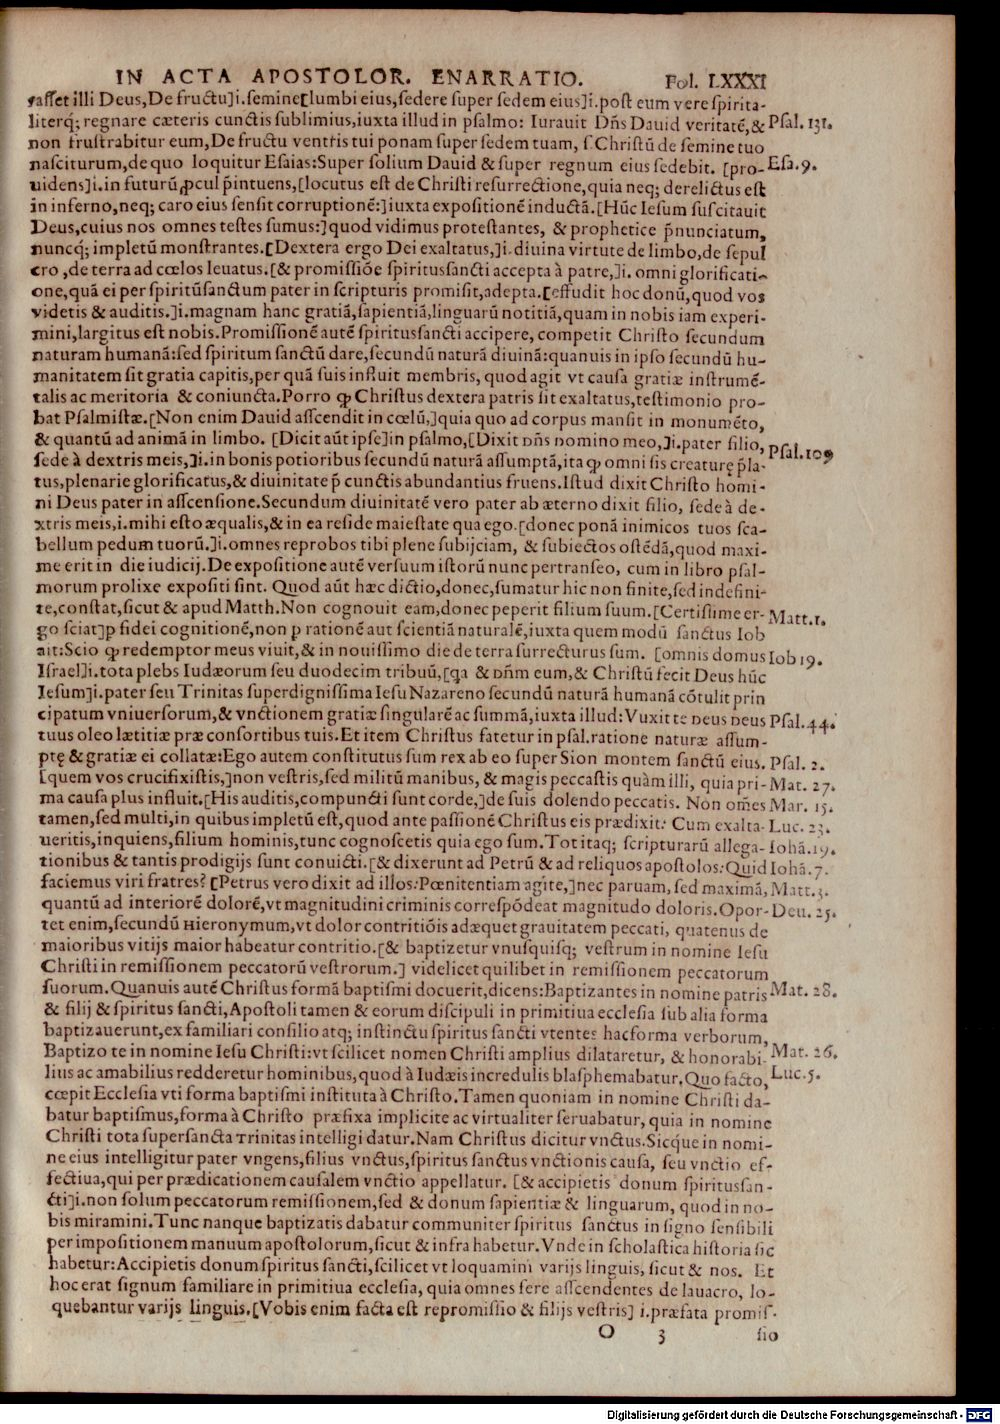 IN ACTA APOSTOLOR. ENARRATIO. Fol. LXXXI
rasset illi Deus,De fructu]i.semine[lumbi eius,sedere super sedem eius]i.post eum vere spirita-
literq́; regnare cæteris cunctis sublimius,iuxta illud in psalmo: Iurauit Dñs Dauid veritatē,& Psal. 131.
non frustrabitur eum,De fructu ventris tui ponam super sedem tuam, s.Christū de semine tuo
nasciturum,de quo loquitur Esaias:Super solium Dauid & super regnum eius sedebit. [pro- Esa.9.
uidens]i.in futurū ꝓcul p̃intuens,[locutus est de Christi resurrectione,quia neq; derelictus est
in inferno,neq; caro eius sensit corruptionē:]iuxta expositionē inductā.[Hūc Iesum suscitauit
Deus,cuius nos omnes testes sumus:]quod vidimus protestantes, & prophetice p̃nunciatum,
nuncq́; impletū monstrantes.[Dextera ergo Dei exaltatus,]i.diuina virtute de limbo,de sepul
cro,de terra ad cœlos leuatus.[& promissiōe spiritussancti accepta à patre,]i. omni glorificati-
one,quā ei per spiritūsanctum pater in scripturis promisit,adepta.[effudit hoc donū,quod vos
videtis & auditis.]i.magnam hanc gratiā,sapientiā,linguarū notitiā,quam in nobis iam experi-
mini,largitus est nobis.Promissionē autē spiritussancti accipere, competit Christo secundum
naturam humanā:sed spiritum sanctū dare,secundū naturā diuinā:quanuis in ipso secundū hu-
manitatem sit gratia capitis,per quā suis influit membris, quod agit vt causa gratiæ instrumē-
talis ac meritoria & coniuncta.Porro ꝙ Christus dextera patris sit exaltatus,testimonio pro-
bat Psalmistæ.[Non enim Dauid ascendit in cœlū,]quia quo ad corpus mansit in monumēto,
& quantū ad animā in limbo. [Dicit aūt ipse]in psalmo,[Dixit Dñs Domino meo,]i.pater filio, Psal.109
sede à dextris meis,]i.in bonis potioribus secundū naturā assumptā,ita ꝙ omni sis creaturę p̃la-
tus,plenarie glorificatus,& diuinitate p̃ cunctis abundantius fruens.Istud dixit Christo homi-
ni Deus pater in ascensione.Secundum diuinitatē vero pater ab æterno dixit filio, sede à de-
xtris meis,i.mihi esto æqualis,& in ea reside maiestate qua ego.[donec ponā inimicos tuos sca-
bellum pedum tuorū.]i.omnes reprobos tibi plene subijciam, & subiectos ostēdā,quod maxi-
me erit in die iudicij.De expositione autē versuum istorū nunc pertranseo, cum in libro psal-
morum prolixe expositi sint. Quod aūt hæc dictio,donec,sumatur hic non finite,sed indefini-
te,constat,sicut & apud Matth.Non cognouit eam,donec peperit filium suum.[Certissime er- Matt.1.
go sciat]p fidei cognitionē,non p rationē aut scientiā naturalē,iuxta quem modū sanctus Iob
ait:Scio ꝙ redemptor meus viuit,& in nouissimo die de terra surrecturus sum. [omnis domus Iob 19.
Israel]i.tota plebs Iudæorum seu duodecim tribuū,[qa & Dñm eum,& Christū fecit Deus hūc
Iesum]i.pater seu Trinitas superdignissima Iesu Nazareno secundū naturā humanā cōtulit prin
cipatum vniuersorum,& vnctionem gratiæ singularē ac summā,iuxta illud:Vuxit te Deus Deus Psal.44.
tuus oleo lætitiæ præ consortibus tuis.Et item Christus fatetur in psal.ratione naturæ assum-
ptę & gratiæ ei collatæ:Ego autem constitutus sum rex ab eo super Sion montem sanctū eius. Psal. 2.
[quem vos crucifixistis,]non vestris,sed militū manibus, & magis peccastis quàm illi, quia pri- Mat. 27.
ma causa plus influit.[His auditis,compuncti sunt corde,]de suis dolendo peccatis. Non om̃es Mar. 15.
tamen,sed multi,in quibus impletū est,quod ante passionē Christus eis prædixit: Cum exalta- Luc. 23.
ueritis,inquiens,filium hominis,tunc cognoscetis quia ego sum.Tot itaq; scripturarū allega- Iohā.19.
tionibus & tantis prodigijs sunt conuicti.[& dixerunt ad Petrū & ad reliquos apostolos:Quid Iohā.7.
faciemus viri fratres? [Petrus vero dixit ad illos:Pœnitentiam agite,]nec paruam, sed maximā, Matt.3.
quantū ad interiorē dolorē,vt magnitudini criminis correspōdeat magnitudo doloris.Opor- Deu. 25.
tet enim,secundū Hieronymum,vt dolor contritiōis adæquet grauitatem peccati, quatenus de
maioribus vitijs maior habeatur contritio.[& baptizetur vnusquisq; vestrum in nomine Iesu
Christi in remissionem peccatorū vestrorum.] videlicet quilibet in remissionem peccatorum
suorum.Quanuis autē Christus formā baptismi docuerit,dicens:Baptizantes in nomine patris Mat. 28.
& filij & spiritus sancti,Apostoli tamen & eorum discipuli in primitiua ecclesia sub alia forma
baptizauerunt,ex familiari consilio atq; instinctu spiritus sancti vtentes hac forma verborum,
Baptizo te in nomine Iesu Christi:vt scilicet nomen Christi amplius dilataretur, & honorabi- Mat. 26.
lius ac amabilius redderetur hominibus,quod à Iudæis incredulis blasphemabatur.Quo facto, Luc.5.
cœpit Ecclesia vti forma baptismi instituta à Christo.Tamen quoniam in nomine Christi da-
batur baptismus,forma à Christo præfixa implicite ac virtualiter seruabatur, quia in nomine
Christi tota supersancta Trinitas intelligi datur.Nam Christus dicitur vnctus.Sicque in nomi-
ne eius intelligitur pater vngens,filius vnctus,spiritus sanctus vnctionis causa, seu vnctio ef-
fectiua,qui per prædicationem causalem vnctio appellatur. [& accipietis donum spiritussan-
cti]i.non solum peccatorum remissionem,sed & donum sapientiæ & linguarum, quod in no-
bis miramini.Tunc nanque baptizatis dabatur communiter spiritus sanctus in signo sensibili
per impositionem manuum apostolorum,sicut & infra habetur.Vnde in scholastica historia sic
habetur:Accipietis donum spiritus sancti,scilicet vt loquamini varijs linguis, sicut & nos. Et
hoc erat signum familiare in primitiua ecclesia, quia omnes fere ascendentes de lauacro, lo-
quebantur varijs linguis.[Vobis enim facta est repromissio & filijs vestris] i.præfata promis-
O 3 sio
Digitalisierung gefördert durch die Deutsche Forschungsgemeinschaft - DFG